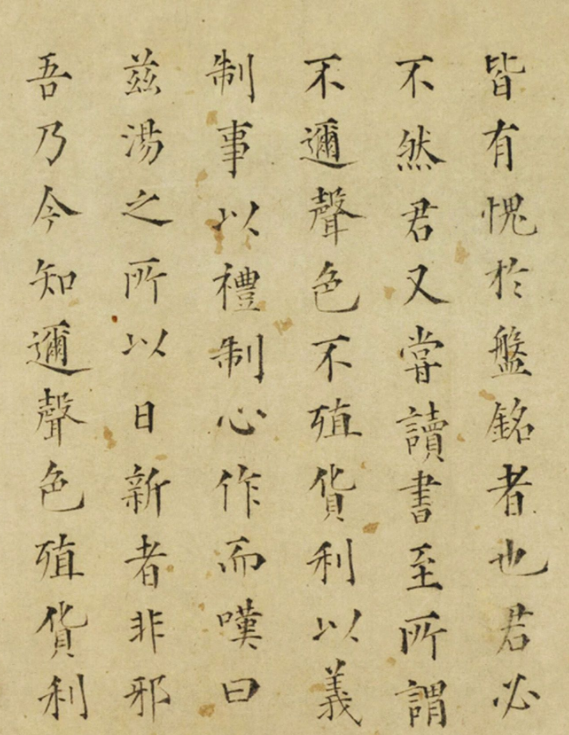 皆有愧於盤銘者也君必
不然君又嘗讀書至所謂
不邇聲色不殖貨利以義
制事以禮制心作而嘆曰
兹湯之所以日新者非邪
吾乃今知邇聲色殖貨利